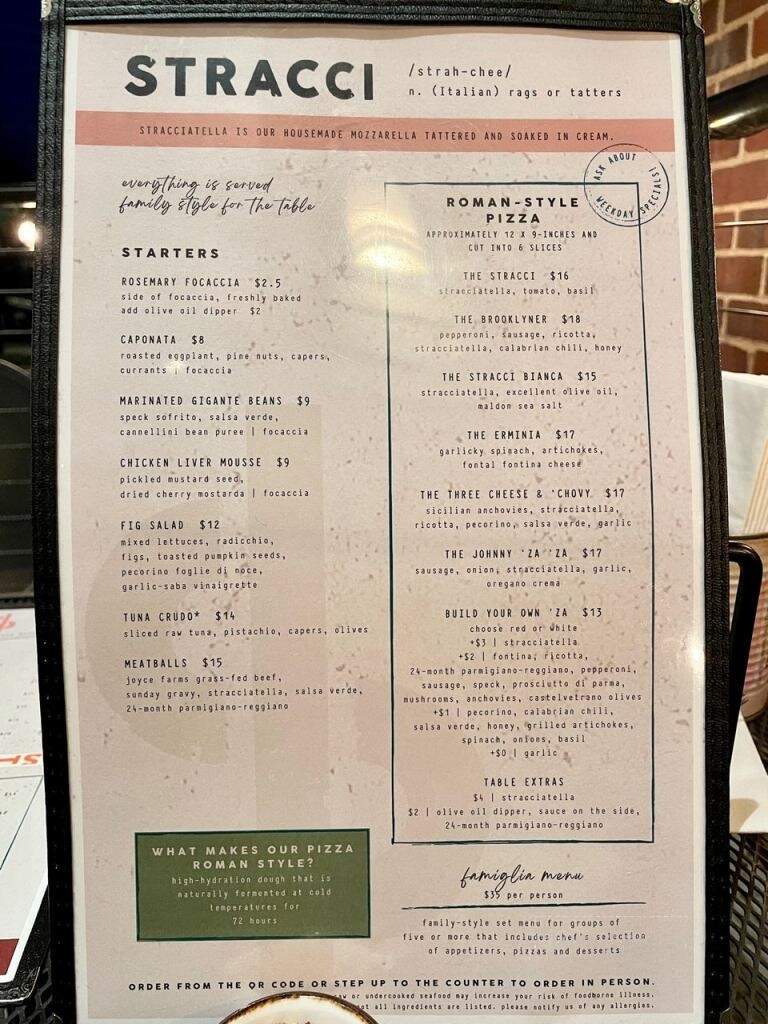 STRACCI
/strah-chee/
n. (Italian) rags or tatters
STRACCIATELLA IS OUR HOUSEMADE MOZZARELLA TATTERED AND SOAKED IN CREAM.
everything is served
family style for the table
STARTERS
ROSEMARY FOCACCIA $2.5
side of focaccia, freshly baked
add olive oil dipper $2
CAPONATA $8
roasted eggplant, pine nuts, capers,
currants | focaccia
MARINATED GIGANTE BEANS $9
speck sofrito, salsa verde,
cannellini bean puree | focaccia
CHICKEN LIVER MOUSSE $9
pickled mustard seed,
dried cherry mostarda | focaccia
FIG SALAD $12
mixed lettuces, radicchio,
figs, toasted pumpkin seeds,
pecorino foglie di noce,
garlic-saba vinaigrette
TUNA CRUDO* $14
sliced raw tuna, pistachio, capers, olives
MEATBALLS $15
joyce farms grass-fed beef,
sunday gravy, stracciatella, salsa verde,
24-month parmigiano-reggiano
WHAT MAKES OUR PIZZA
ROMAN STYLE?
high-hydration dough that is
naturally fermented at cold
temperatures for
72 hours
ASK ABOUT
WEEKDAY SPECIALS!
ROMAN-STYLE
PIZZA
APPROXIMATELY 12 X 9-INCHES AND
CUT INTO 6 SLICES
THE STRACCI $16
stracciatella, tomato, basil
THE BROOKLYNER $18
pepperoni, sausage, ricotta,
stracciatella, calabrian chili, honey
THE STRACCI BIANCA $15
stracciatella, excellent olive oil,
maldon sea salt
THE ERMINIA $17
garlicky spinach, artichokes,
fontal fontina cheese
THE THREE CHEESE & 'CHOVY $17
sicilian anchovies, stracciatella,
ricotta, pecorino, salsa verde, garlic
THE JOHNNY 'ZA 'ZA $17
sausage, onion, stracciatella, garlic,
oregano crema
BUILD YOUR OWN 'ZA $13
choose red or white
+$3 | stracciatella
+$2 | fontina, ricotta,
24-month parmigiano-reggiano, pepperoni,
sausage, speck, prosciutto di parma,
mushrooms, anchovies, castelvetrano olives
+$1 | pecorino, calabrian chili,
salsa verde, honey, grilled artichokes,
spinach, onions, basil
+$0 | garlic
TABLE EXTRAS
$4 | stracciatella
$2 | olive oil dipper, sauce on the side,
24-month parmigiano-reggiano
famiglia menu
$35 per person
family-style set menu for groups of
five or more that includes chef's selection
of appetizers, pizzas and desserts
ORDER FROM THE QR CODE OR STEP UP TO THE COUNTER TO ORDER IN PERSON.
or undercooked seafood may increase your risk of foodborne illness.
not all ingredients are listed. please notify us of any allergies.